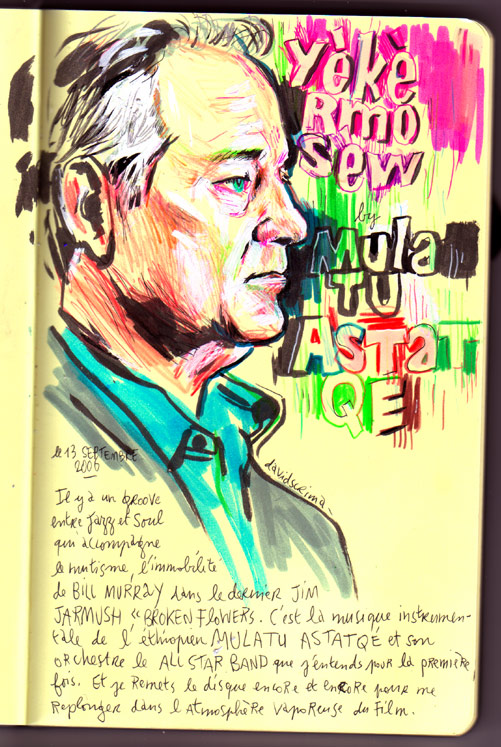 Yèkè
Rmó
sew
by
Mula
TU
AStAT
QÉ
davidscrima
le 13 SEPTEMBRE
2006
Il y a un groove
entre Jazz et Soul
qui accompagne
le mutisme, l'immobilité
de BILL MURRAY dans le dernier JIM
JARMUSH « BROKEN FLOWERS. C'est la musique instrumen-
tale de l'éthiopien MULATU ASTATQÉ et son
ORCHESTRE le ALL STAR BAND que j'entends pour la PREMIÈRE
fois. Et je Remets le disque encore et encore pour me
Replonger dans l'Atmosphère vaporeuse du Film.